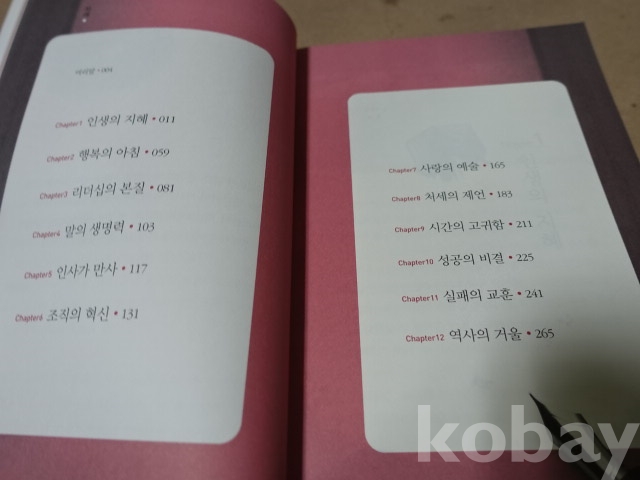 머리말 • 004
Chapter1 인생의 지혜 • 011
Chapter2 행복의 아침 • 059
Chapter3 리더십의 본질 • 081
Chapter4 말의 생명력 • 103
Chapter5 인사가 만사 • 117
Chapter6 조직의 혁신 • 131
Chapter7 사랑의 예술 • 165
Chapter8 처세의 제언 • 183
Chapter9 시간의 고귀함 • 211
Chapter10 성공의 비결 • 225
Chapter11 실패의 교훈 • 241
Chapter12 역사의 거울 • 265
kobay